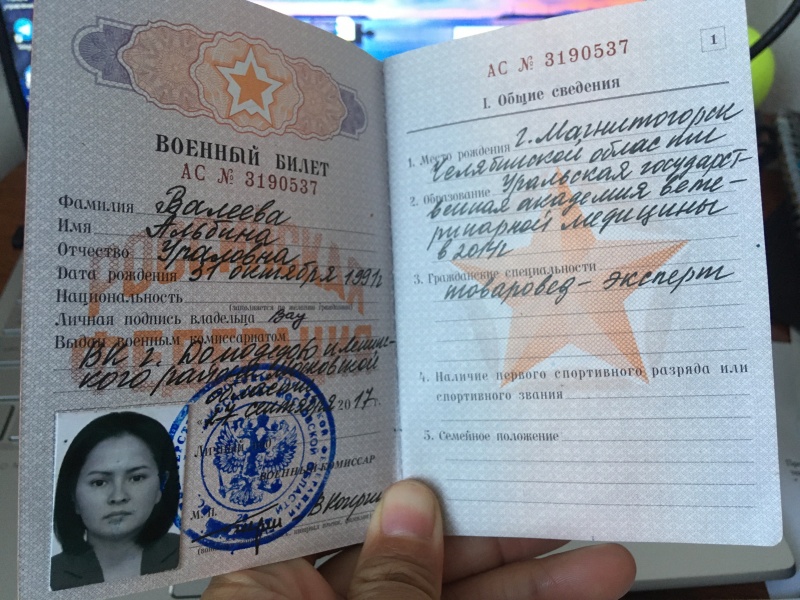 ВОЕННЫЙ БИЛЕТ
АС № 3190537
Фамилия Валеева
Имя Альбина
Отчество Ураловна
Дата рождения 31 октября 1991г
Национальность
Личная подпись владельца
Выдан военным комиссариатом
ВК г. Домодедово и Ленинс-
кого района Московской
области
сентября 2017 г.
ВОЕННЫЙ КОМИССАР
М. П.
РОССИЙСКАЯ
ФЕДЕРАЦИЯ
АС № 3190537
1
I. Общие сведения
1. Место рождения г. Магнитогорск
Челябинской области
2. Образование Уральская государст-
венная академия вете-
ринарной медицины
в 2014г
3. Гражданские специальности
товаровед-эксперт
4. Наличие первого спортивного разряда или
спортивного звания
5. Семейное положение